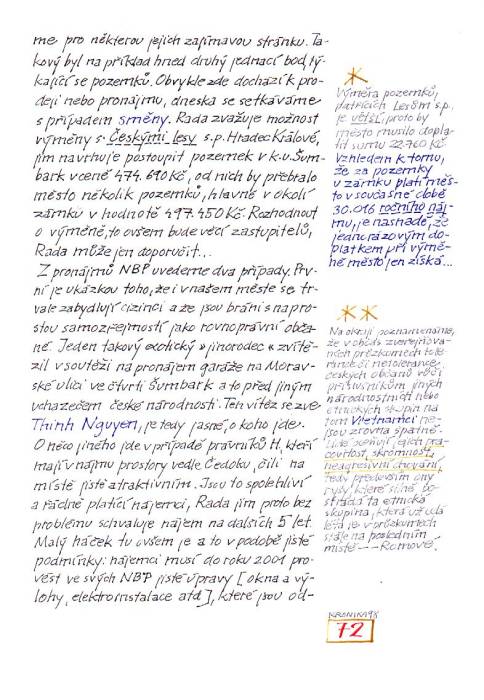 me pro některou jejich zajímavou stránku. Ta-
kový byl na příklad hned druhý jednací bod, tý-
kající se pozemků. Obvykle zde dochází k pro-
deji nebo pronájmu, dneska se setkáváme
s případem směny. Rada zvažuje možnost
výměny s Českými lesy s.p. Hradec Králové,
jim navrhuje postoupit pozemek v k.ú. Šum-
bark v ceně 474.690 Kč, od nich by přebralo
město několik pozemků, hlavně v okolí
zámku v hodnotě 497.450 Kč. Rozhodnout
o výměně, to ovšem bude věcí zastupitelů,
Rada může jen doporučit...
Z pronájmů NBP uvedeme dva případy. Prv-
ní je ukázkou toho, že i v našem městě se tr-
vale zabydlují cizinci a že jsou bráni s napro-
stou samozřejmostí jako rovnoprávní obča-
né. Jeden takový exotický »jinorodec« zvítě-
zil v soutěži na pronájem garáže na Morav-
ské ulici ve čtvrti Šumbark a to před jiným
uchazečem české národnosti. Ten vítěz se zve
Thinh Nguyen, je tedy jasné, o koho jde.
O něco jiného jde v případě právníků H, kteří
mají v nájmu prostory vedle Čedoku, čili na
místě jistě atraktivním. Jsou to spolehliví
a řádně platící nájemci, Rada jim proto bez
problému schvaluje nájem na dalších 5 let.
Malý háček tu ovšem je a to v podobě jisté
podmínky: nájemci musí do roku 2001 pro-
vést ve svých NBP jisté úpravy [okna a vý-
lohy, elektroinstalace atd], které jsou od-
*
Výměra pozemků,
patřících Lesům s.p.,
je větší, proto by
město muselo dopla-
tit sumu 22.760 Kč.
Vzhledem k tomu,
že za pozemky
u zámku platí měs-
to v současné době
30.016 ročního náj-
mu, je nasnadě, že
jednorázovým do-
platkem při výmě-
ně město jen získá...
**
Na okraji poznamenáme,
že v obvykle zveřejňova-
ných průzkumech tole-
rance či netolerance
českých občanů vůči
příslušníkům jiných
národnostních nebo
etnických skupin na
tom Vietnamci ne-
jsou zrovna špatně.
Lidé oceňují jejich pra-
covitost, skromnost,
neagresivní chování,
tedy především ony
rysy, které silně po-
strádá ta etnická
skupina, která už od
léta je v průzkumech
stále na posledním
místě --- Romové.
KRONIKA 98
72